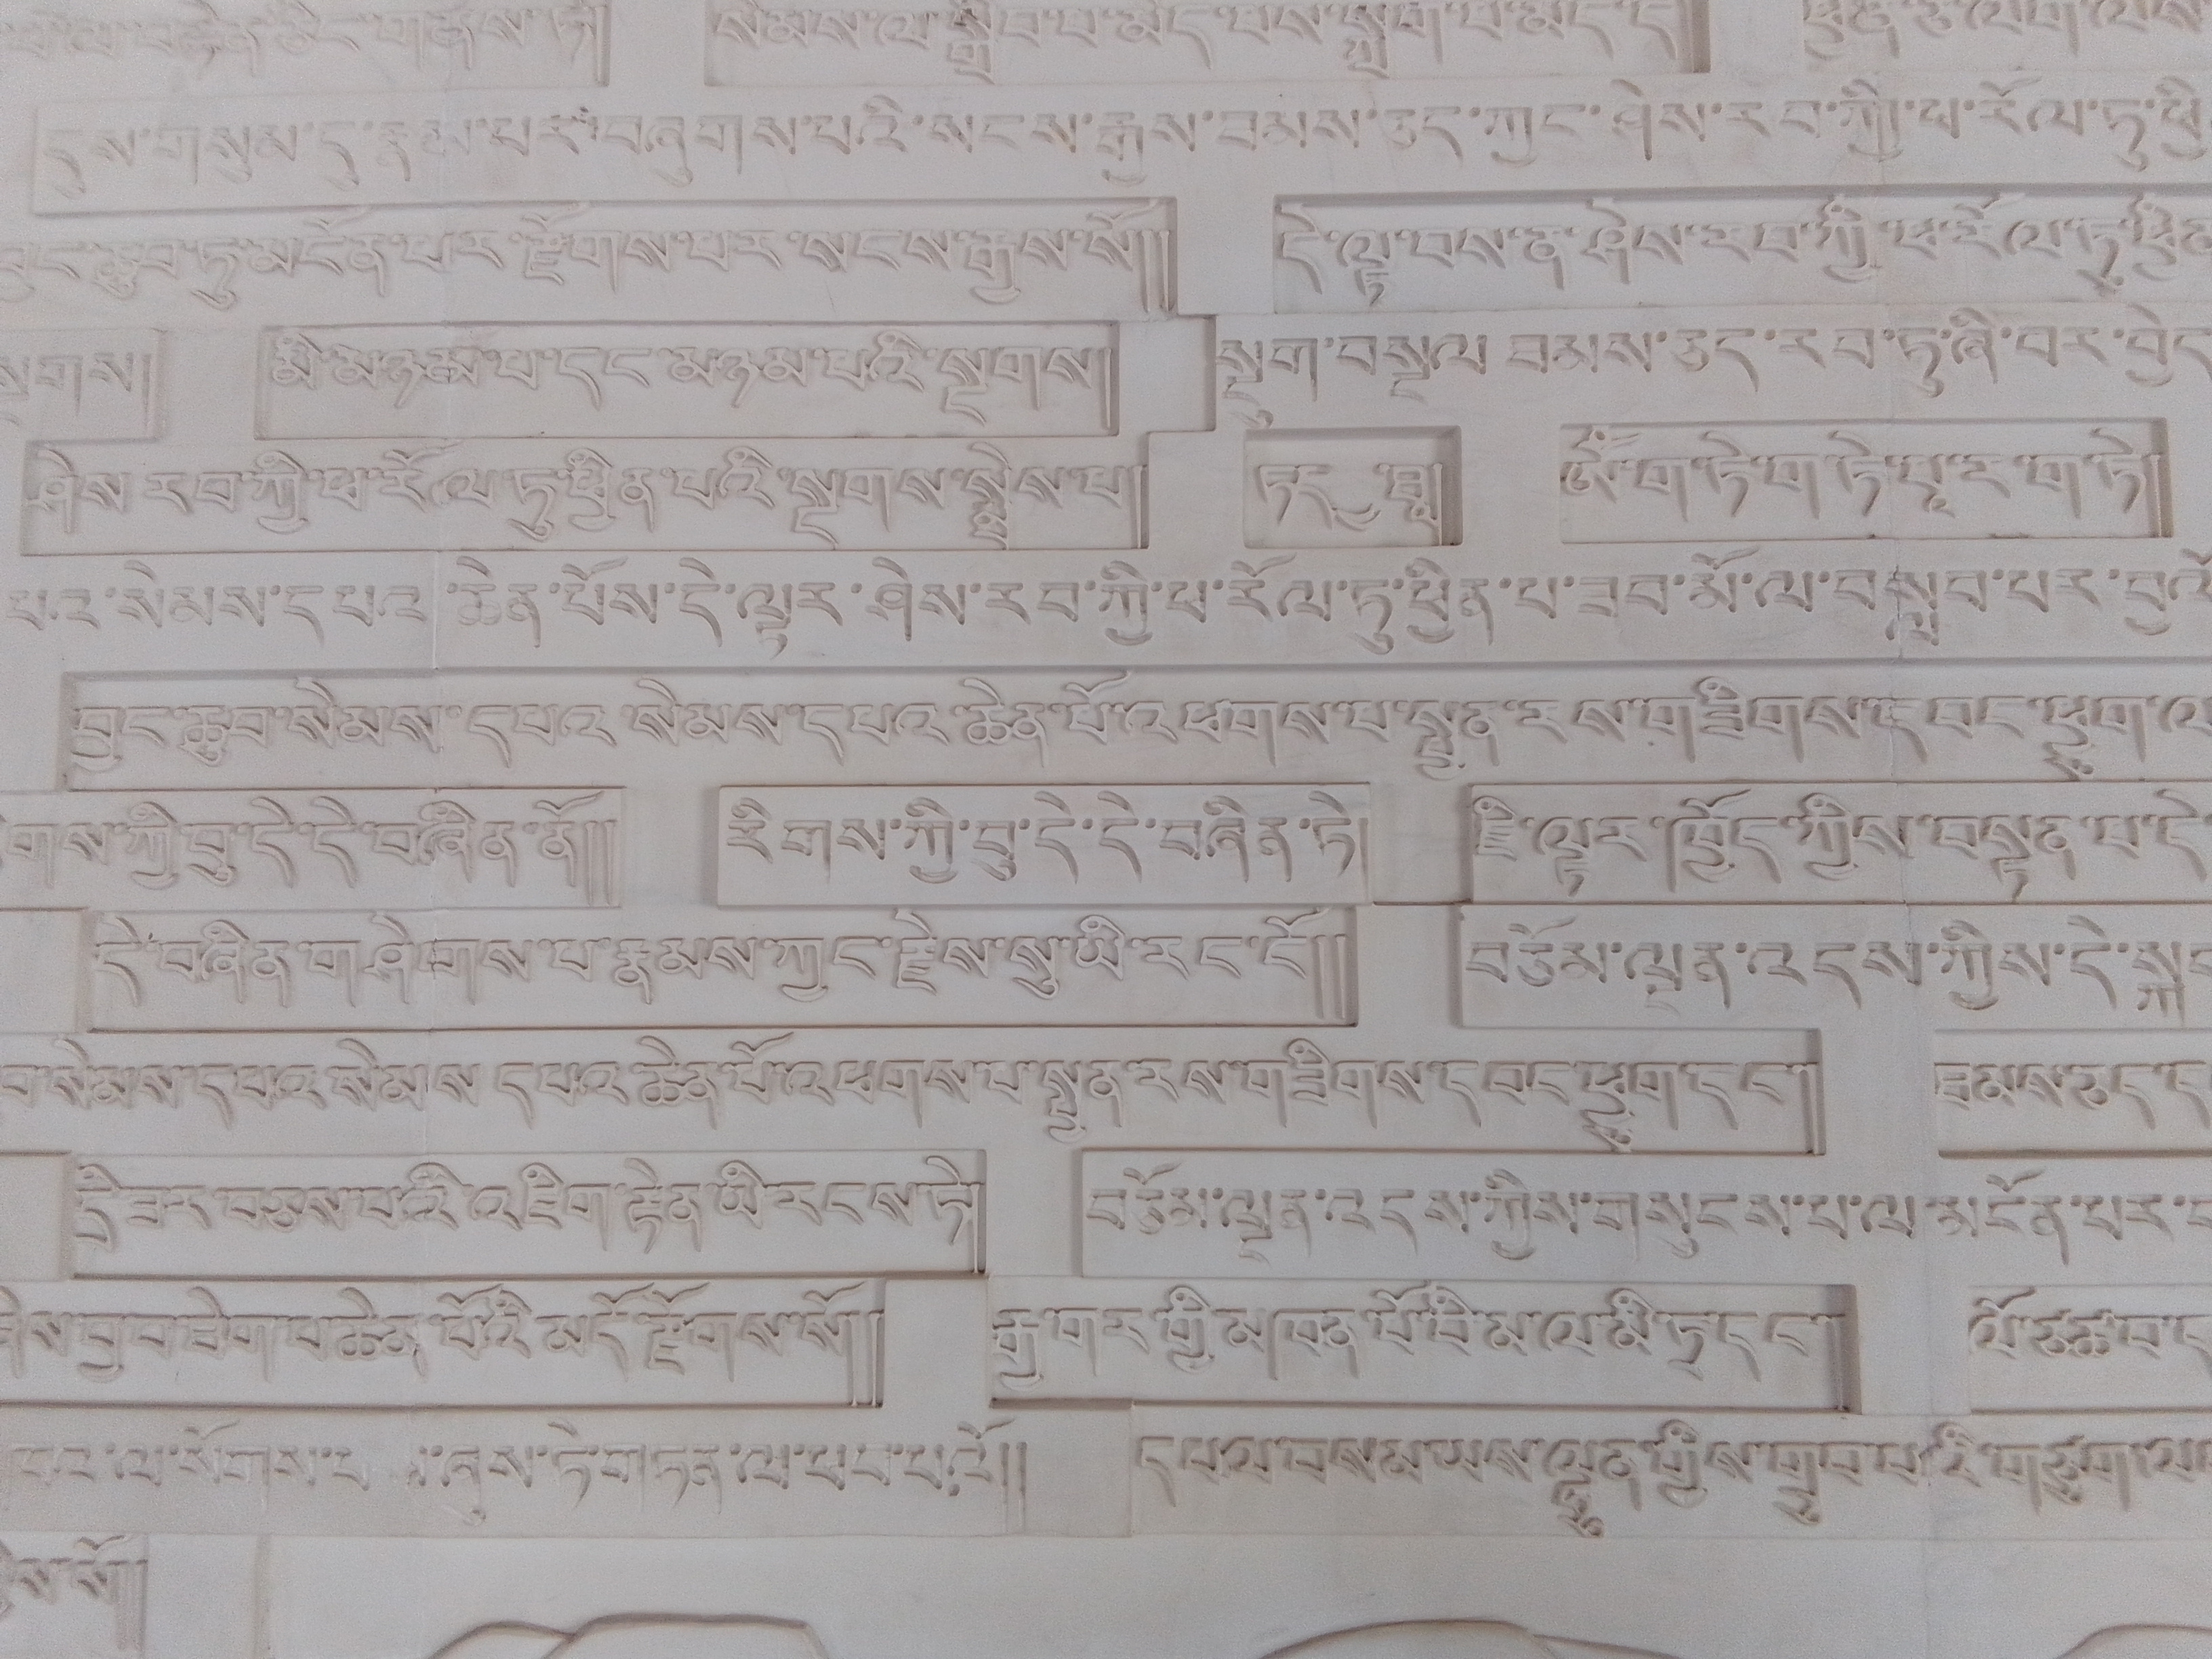 སེམས་ལ་སྒྲིབ་པ་མེད་པས་སྐྲག་པ་མེད་དེ།
དུས་གསུམ་དུ་རྣམ་པར་བཞུགས་པའི་སངས་རྒྱས་ཐམས་ཅད་ཀྱང་ཤེས་རབ་ཀྱི་ཕ་རོལ་ཏུ་ཕྱི
བྱང་ཆུབ་ཏུ་མངོན་པར་རྫོགས་པར་སངས་རྒྱས་སོ།། དེ་ལྟ་བས་ན་ཤེས་རབ་ཀྱི་ཕ་རོལ་ཏུ་ཕྱིན
སྔགས། མི་མཉམ་པ་དང་མཉམ་པའི་སྔགས། སྡུག་བསྔལ་ཐམས་ཅད་རབ་ཏུ་ཞི་བར་བྱེད
ཤེས་རབ་ཀྱི་ཕ་རོལ་ཏུ་ཕྱིན་པའི་སྔགས་སྨྲས་པ། ཨོཾ་ག་ཏེ་ག་ཏེ་པཱ་ར་ག་ཏེ།
སེམས་དཔའ་ཆེན་པོས་དེ་ལྟར་ཤེས་རབ་ཀྱི་ཕ་རོལ་ཏུ་ཕྱིན་པ་ཟབ་མོ་ལ་བསླབ་པར་བྱའོ
བྱང་ཆུབ་སེམས་དཔའ་སེམས་དཔའ་ཆེན་པོ་འཕགས་པ་སྤྱན་རས་གཟིགས་དབང་ཕྱུག་ལ
གས་ཀྱི་བུ་དེ་དེ་བཞིན་ནོ།། རིགས་ཀྱི་བུ་དེ་དེ་བཞིན་ཏེ། ཇི་ལྟར་ཁྱོད་ཀྱིས་བསྟན་པ་དེ
དེ་བཞིན་གཤེགས་པ་རྣམས་ཀྱང་རྗེས་སུ་ཡི་རང་ངོ།། བཅོམ་ལྡན་འདས་ཀྱིས་དེ་སྐད
བ་སེམས་དཔའ་སེམས་དཔའ་ཆེན་པོ་འཕགས་པ་སྤྱན་རས་གཟིགས་དབང་ཕྱུག་དང༌། ཐམས་ཅད་ད
དྲི་ཟར་བཅས་པའི་འཇིག་རྟེན་ཡི་རངས་ཏེ། བཅོམ་ལྡན་འདས་ཀྱིས་གསུངས་པ་ལ་མངོན་པར་བ
ཞེས་བྱ་བ་ཐེག་པ་ཆེན་པོའི་མདོ་རྫོགས་སོ།། རྒྱ་གར་གྱི་མཁན་པོ་བི་མ་ལ་མི་ཏྲ་དང༌། ལོ་ཙཙ་བ་ད
ལ་སོགས་པས་ཞུས་ཏེ་གཏན་ལ་ཕབ་པའོ།། དཔལ་བསམ་ཡས་ལྷུན་གྱིས་གྲུབ་པའི་གཙུག་ལ